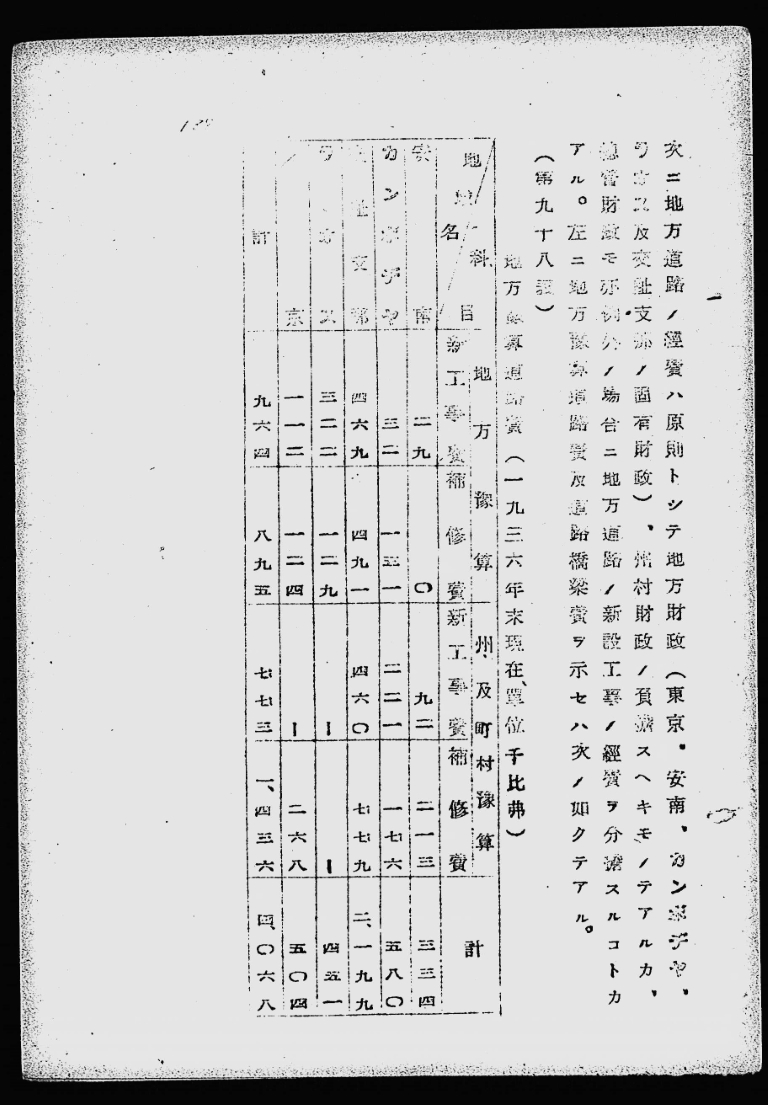 次ニ地方道路ノ經費ハ原則トシテ地方財政（東京・安南、カンボヂヤ、
ラオス及交趾支那ノ固有財政）、州村財政ノ負擔スヘキモノテアルカ、
財政モ亦例外ノ場合ニ地方道路ノ新設工事ノ經費ヲ分擔スルコトカ
アル。左ニ地方豫算道路費及道路橋梁費ヲ示セハ次ノ如クテアル。
（第九十八表）
地方豫算道路費（一九三六年末現在、單位千比弗）
地域名／科目 地方豫算 州及町村豫算 計
新工事費 補修費 新工事費 補修費
安南 二九 〇 九二 二一三 三三四
カンボヂヤ 三二 一五一 二二一 一七六 五八〇
交趾支那 四六九 四九一 四六〇 七七九 二、一九九
ラオス 三二二 一二九 ー ー 四五一
京 一一二 一二四 ー 二六八 五〇四
計 九六四 八九五 七七三 一、四三六 四、〇六八